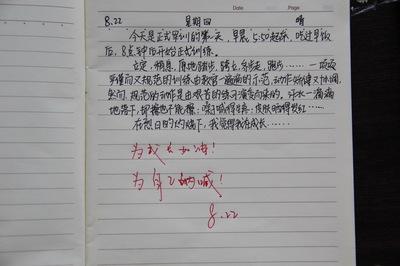 Date
Page
8.22 星期四 晴
今天是正式军训的第一天，早晨5:50起床，吃过早饭
后，8点钟后开始正式训练。
立定，稍息，原地踏步，跨立，齐步走，跑步……一项项
又规范的训练由教官一遍遍的示范，动作矫健又协调，
然而，规范的动作是由艰苦的练习演变而来的。汗水一滴滴
地落下，却擦也不能擦；嗓子喊得生疼，皮肤晒得发红……
在烈日的灼烧下，我觉得我在成长……
为成长加油！
为自己呐喊！
8.22